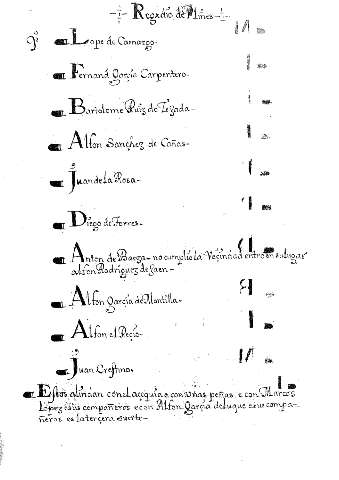 Regadio de Mures
Lope de Camargo.
Fernand García Carpentero.
Bartolome Ruiz de Tejada.
Alfon Sanchez de Cañas.
Juan de La Rosa.
Diego de Torres.
Anton de Baeza no cumplio la vezindad entro en su lugar
Alfon Rodriguez de Jaen.
Alfon García de Montilla.
Alfon el Recio.
Juan Crestino.
Estos alindan con el açiquia e con unas peñas e con Marcos
Lopez e sus compañeros e con Alfon García de luque e sus compa-
ñeros es la terçera suerte.